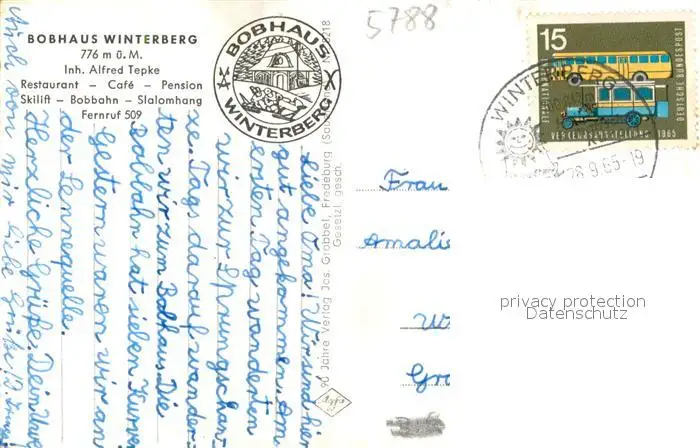 BOBHAUS WINTERBERG
776 m ü. M.
Inh. Alfred Tepke
Restaurant – Café – Pension
Skilift – Bobbahn – Slalomhang
Fernruf 509
BOBHAUS
WINTERBERG
5788
15
DEUTSCHE BUNDESPOST
1965
WINTERBERG
28.9.65-19
90 Jahre Verlag Jos. Grobbel, Fredeburg
Gesetzl. gesch.
Agfa
Liebe Oma! Wir sind hier
gut angekommen. Am
ersten Tag wanderten
wir zur Sprungschan-
ze. Tags darauf wander-
ten wir zum Bobhaus. Die
Bobbahn hat sieben Kurve
Gestern waren wir an
der Lennequelle.
Herzliche Grüße. Dein Uwe
Auch von mir liebe Grüße!
Frau
Amalie
W
Gro
privacy protection
Datenschutz